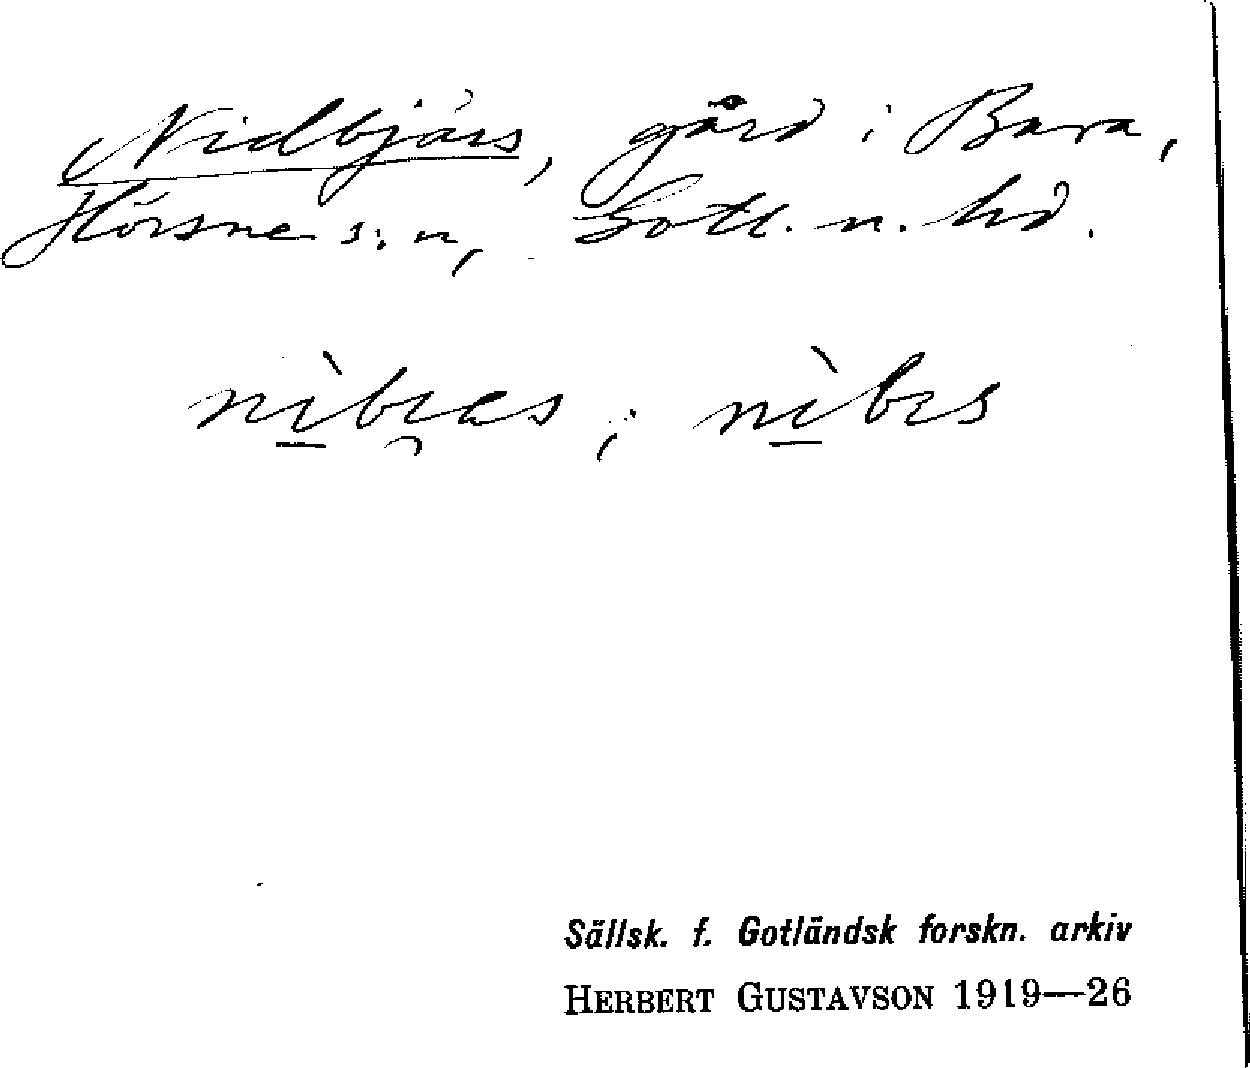 Nidbjärs, gård i Bara,
Hörsne s:n, Gotl. n. hd.
nìbɩ̯as ; nìbɩs
Sällsk. f. Gotländsk forskn. arkiv
HERBERT GUSTAVSON 1919—26